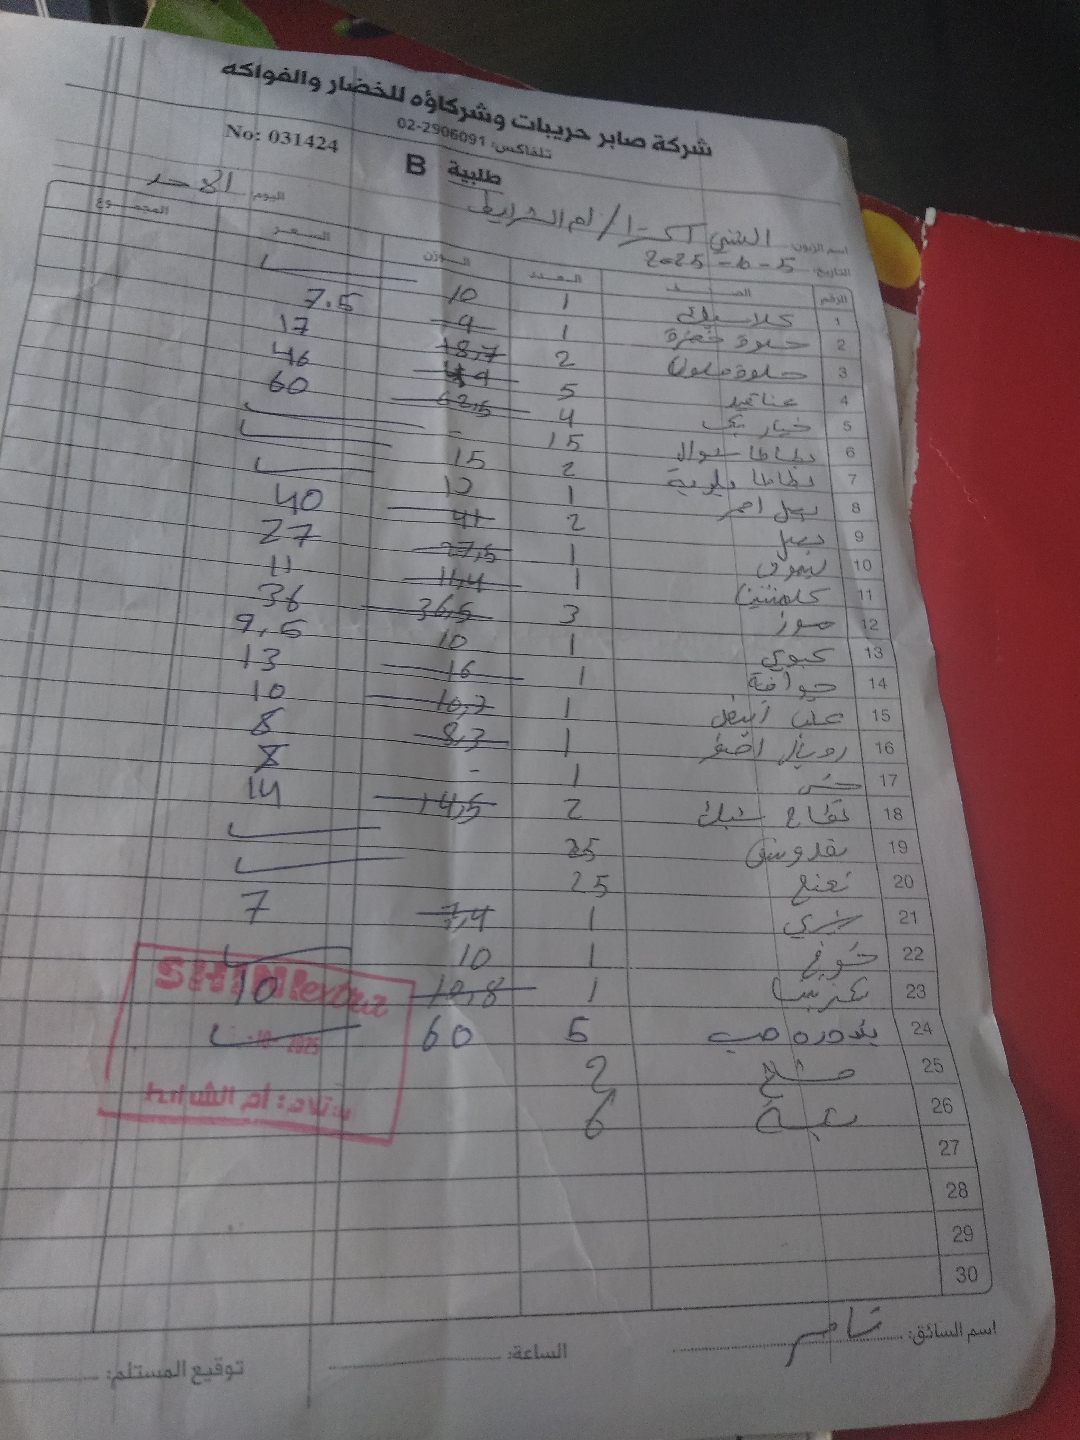 شركة صابر حريبات وشركاؤه للخضار والفواكه
تلفاكس: 02-2906091
No: 031424
طلبية B
اليوم: الاحد
اسم الزبون: الشني اكسترا / ام الشرايط
التاريخ: 5-10-2025
الرقم الصنف العدد الوزن السعر المجموع
1 1 10
2 حلوة خضرة 1 9 7.5
3 حلوة ملون 2 18,7 17
4 عناقيد 5 46
5 خيار 4 62,5 60
6 بطاطا 15 -
7 بطاطا 2 15
8 بصل احمر 1 12
9 بصل 2 41 40
10 ليمون 1 27,5 27
11 كلمنتينا 1 11,4 11
12 موز 3 36,5 36
13 1 10 9,5
14 جوافة 1 16 13
15 عنب ابيض 1 10,7 10
16 رويال اصفر 1 8,3 8
17 خس 1 - 8
18 تفاح 2 14,5 14
19 بقدونس 25
20 نعنع 25
21 1 7,4 7
22 1 10
23 1 10,8 10
24 بندورة حب 5 60
25 2
26 6
27
28
29
30
SHINI extra
2025
ستلام: ام الشرايط
اسم السائق: تامر
الساعة:
توقيع المستلم: